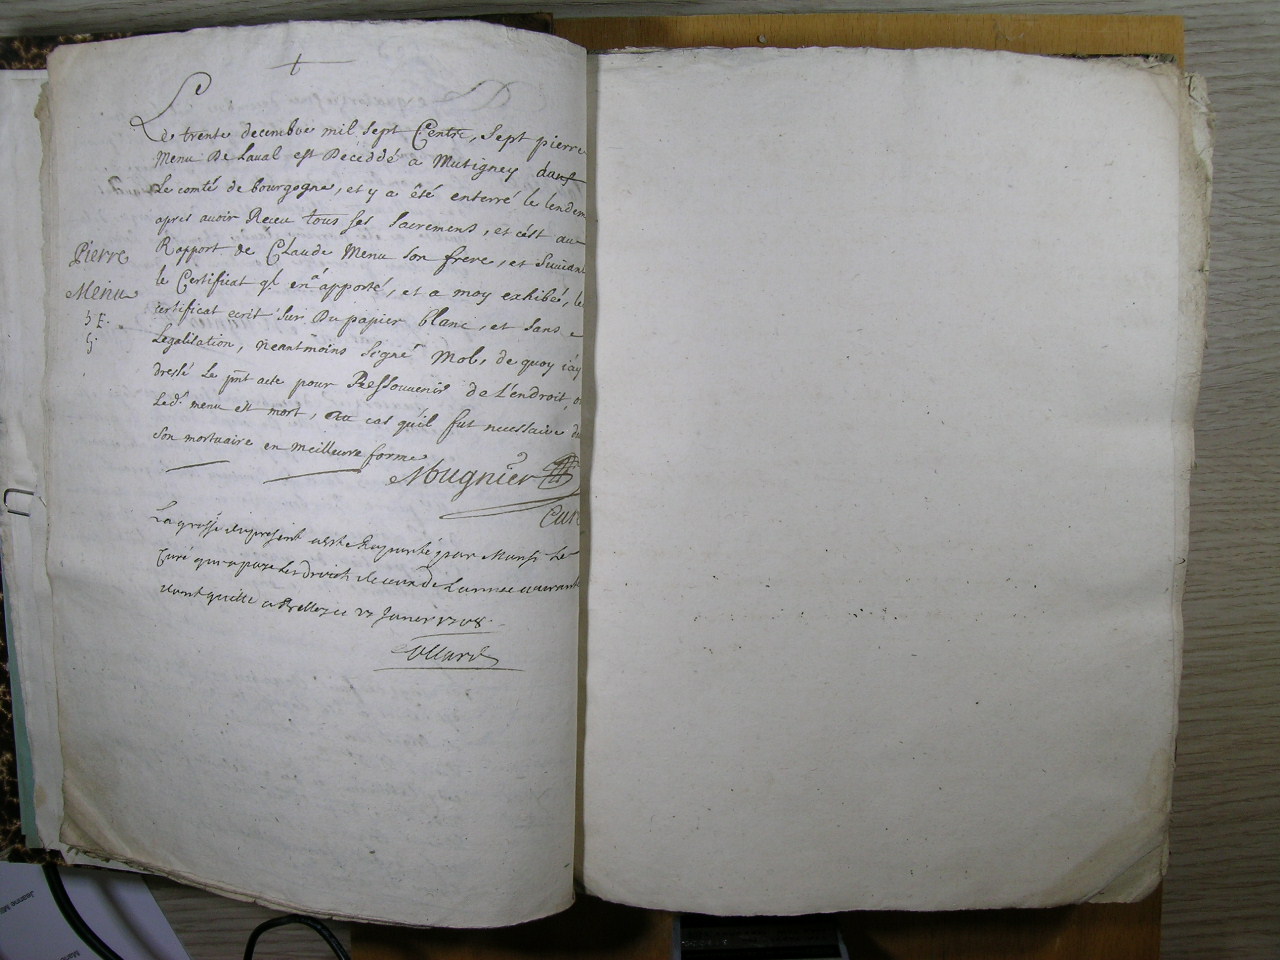 Le trente decembre mil sept Centz, Sept pierre
Menu De Laval est Decéddé a Mutigney dans
Le comté de bourgogne, et y a êté enterré le lendem
apres avoir Receu tous ses sacrements, et c'ést au
Rapport de Claude Menu son frere, et Suivant
le Certificat ql. en a apporté, et a moy exhibé, le
certificat ecrit sur Du papier blanc, et sans
Legalisation, neantmoins signé Mol, de quoy i'ay
dressé Le pnt acte pour Ressouvenir de L'éndroit, ou
Led. menu est mort, au cas qu'il fut necessaire du
son mortuaire en meilleure forme
Mugnier
Curé
Pierre
Menu
La grosse du present a esté Raporté par Monsr. Le
Curé qui a payé Les droits de ceux de L'année courante
dont quitte a ce 27 Janvier 1708.